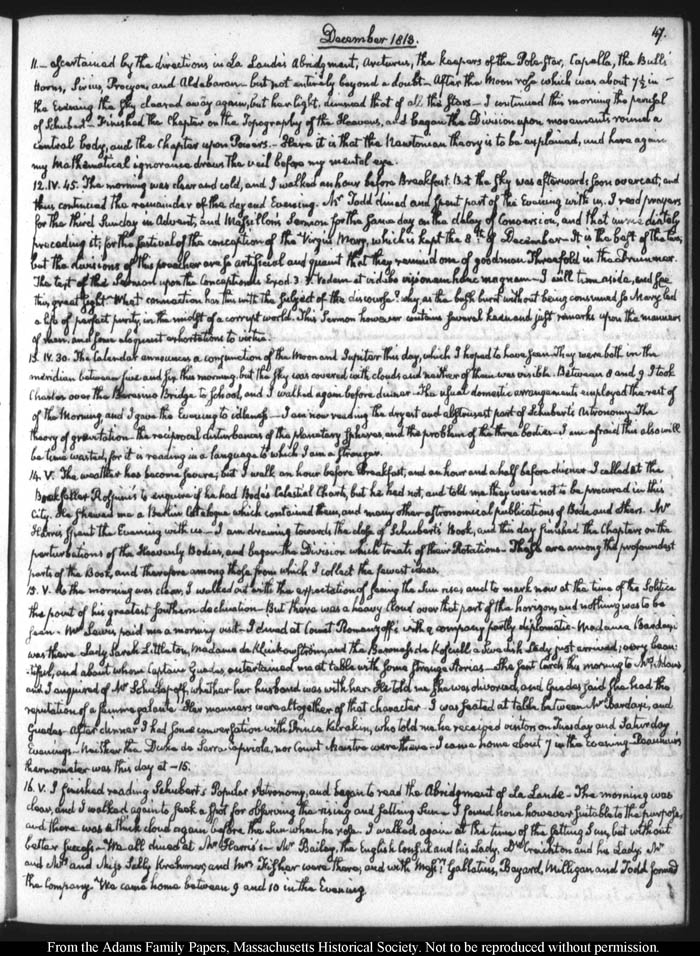 December 1813.
47.
11.— ascertained by the directions in La Lande's Abridgment, Arcturus, the keepers of the Pole-Star, Capella, the Bull's
Horns, Sirius, Procyon, and Aldebaran— but not entirely beyond a doubt— After the Moon rose which was about 7½ in
the Evening the sky cleared away again, but her light, dimmed that of all the Stars— I continued this morning the perusal
of Schubert— Finished the Chapter on the Topography of the Heavens, and began the Division upon movements round a
central body, and the Chapter upon Powers.— Here it is that the Newtonian theory is to be explained, and here again
my Mathematical ignorance draws the veil before my mental eye.
12. IV. 45. The morning was clear and cold, and I walked an hour before Breakfast. But the sky was afterwards soon overcast, and
thus continued the remainder of the day and Evening. Mr Todd dined and spent part of the Evening with us. I read prayers
for the third Sunday in Advent; and Massillon's Sermon for the same day on the delay of Conversion, and that immediately
preceding it; for the festival of the conception of the Virgin Mary, which is kept the 8th of December— It is the best of the two,
but the divisions of this preacher are so artificial and quaint that they remind one of goodman Threefold in the Drummer.
The text of this Sermon upon the Conception is Exod. 3. 3. Vadam et videbo visionem hanc magnam— I will turn aside, and see
this great sight. What connection has this with the subject of the discourse? why as the bush burnt without being consumed so Mary led
a life of perfect purity, in the midst of a corrupt world. This Sermon however contains several keen and just remarks upon the manners
of men, and some eloquent exhortations to virtue.
13. IV. 30. The Calendar announces a conjunction of the Moon and Jupiter this day, which I hoped to have seen. They were both in the
meridian between five and six this morning, but the sky was covered with clouds and neither of them was visible. Between 8 and 9 I took
Charles over the Beresine Bridge to School, and I walked again before dinner— The usual domestic arrangements employed the rest of
of the Morning and I gave the Evening to idleness— I am now reading the dryest and abstrusest part of Schubert's Astronomy— The
theory of gravitation— the reciprocal disturbances of the planetary spheres, and the problem of the three bodies— I am afraid this also will
be time wasted, for it is reading in a language to which I am a stranger.
14. V. The weather has become severe; but I walk an hour before Breakfast, and an hour and a half before dinner. I called at the
Bookseller Rospini's to enquire if he had Bode's Celestial Charts, but he had not, and told me they were not to be procured in this
City. He shewed me a Berlin Catalogue which contained them, and many other astronomical publications of Bode and others. Mr
Harris spent the Evening with us.— I am drawing towards the close of Schubert's Book, and this day finished the Chapters on the
perturbations of the Heavenly Bodies, and began the Division which treats of their Rotations— These are among the profoundest
parts of the Book, and therefore among those from which I collect the fewest ideas.
15. V. As the morning was clear, I walked out with the expectation of seeing the Sun rise; and to mark now at the time of the Solstice
the point of his greatest southern declination— But there was a heavy Cloud over that part of the horizon, and nothing was to be
seen— Mr Lewis paid me a morning visit— I dined at Count Romanzoff's with a company partly diplomatic— Madame Bardaxi
was there Lady Sarah Littleton, Madame de and the Baroness de a Swedish Lady just arrived; very beau-
-tiful, and about whom Captain Guedes entertained me at table with some strange stories— She sent Cards this morning to Mrs Adams
and I enquired of Mr whether her husband was with her. He told me she was divorced, and Guedes said She had the
reputation of a femme galante. Her manners were altogether of that character— I was seated at table between Mr Bardaxi, and
Guedes— After dinner I had some conversation with Prince who told me he received visitors on Tuesday and Saturday
Evenings— Neither the Duke de Serra Capriola, nor Count Maistre were there— I came home about 7 in the Evening. Reaumur's
thermometer was this day at —15.
16. V. I finished reading Schubert's Popular Astronomy, and began to read the Abridgment of La Lande— The morning was
clear, and I walked again to seek a spot for observing the rising and setting Sun— I found none however suitable to the purpose,
and there was a thick cloud again before the Sun when he rose— I walked again at the time of the setting Sun, but without
better success— We all dined at Mr Harris's— Mr Bailey, the English Consul and his Lady, Dr Creighton and his Lady, Mr
and Mrs and Miss Sally Krehmer, and Mrs Fisher were there; and with Messrs Gallatin, Bayard, Milligan and Todd formed
the Company. We came home between 9 and 10 in the Evening
From the Adams Family Papers, Massachusetts Historical Society. Not to be reproduced without permission.